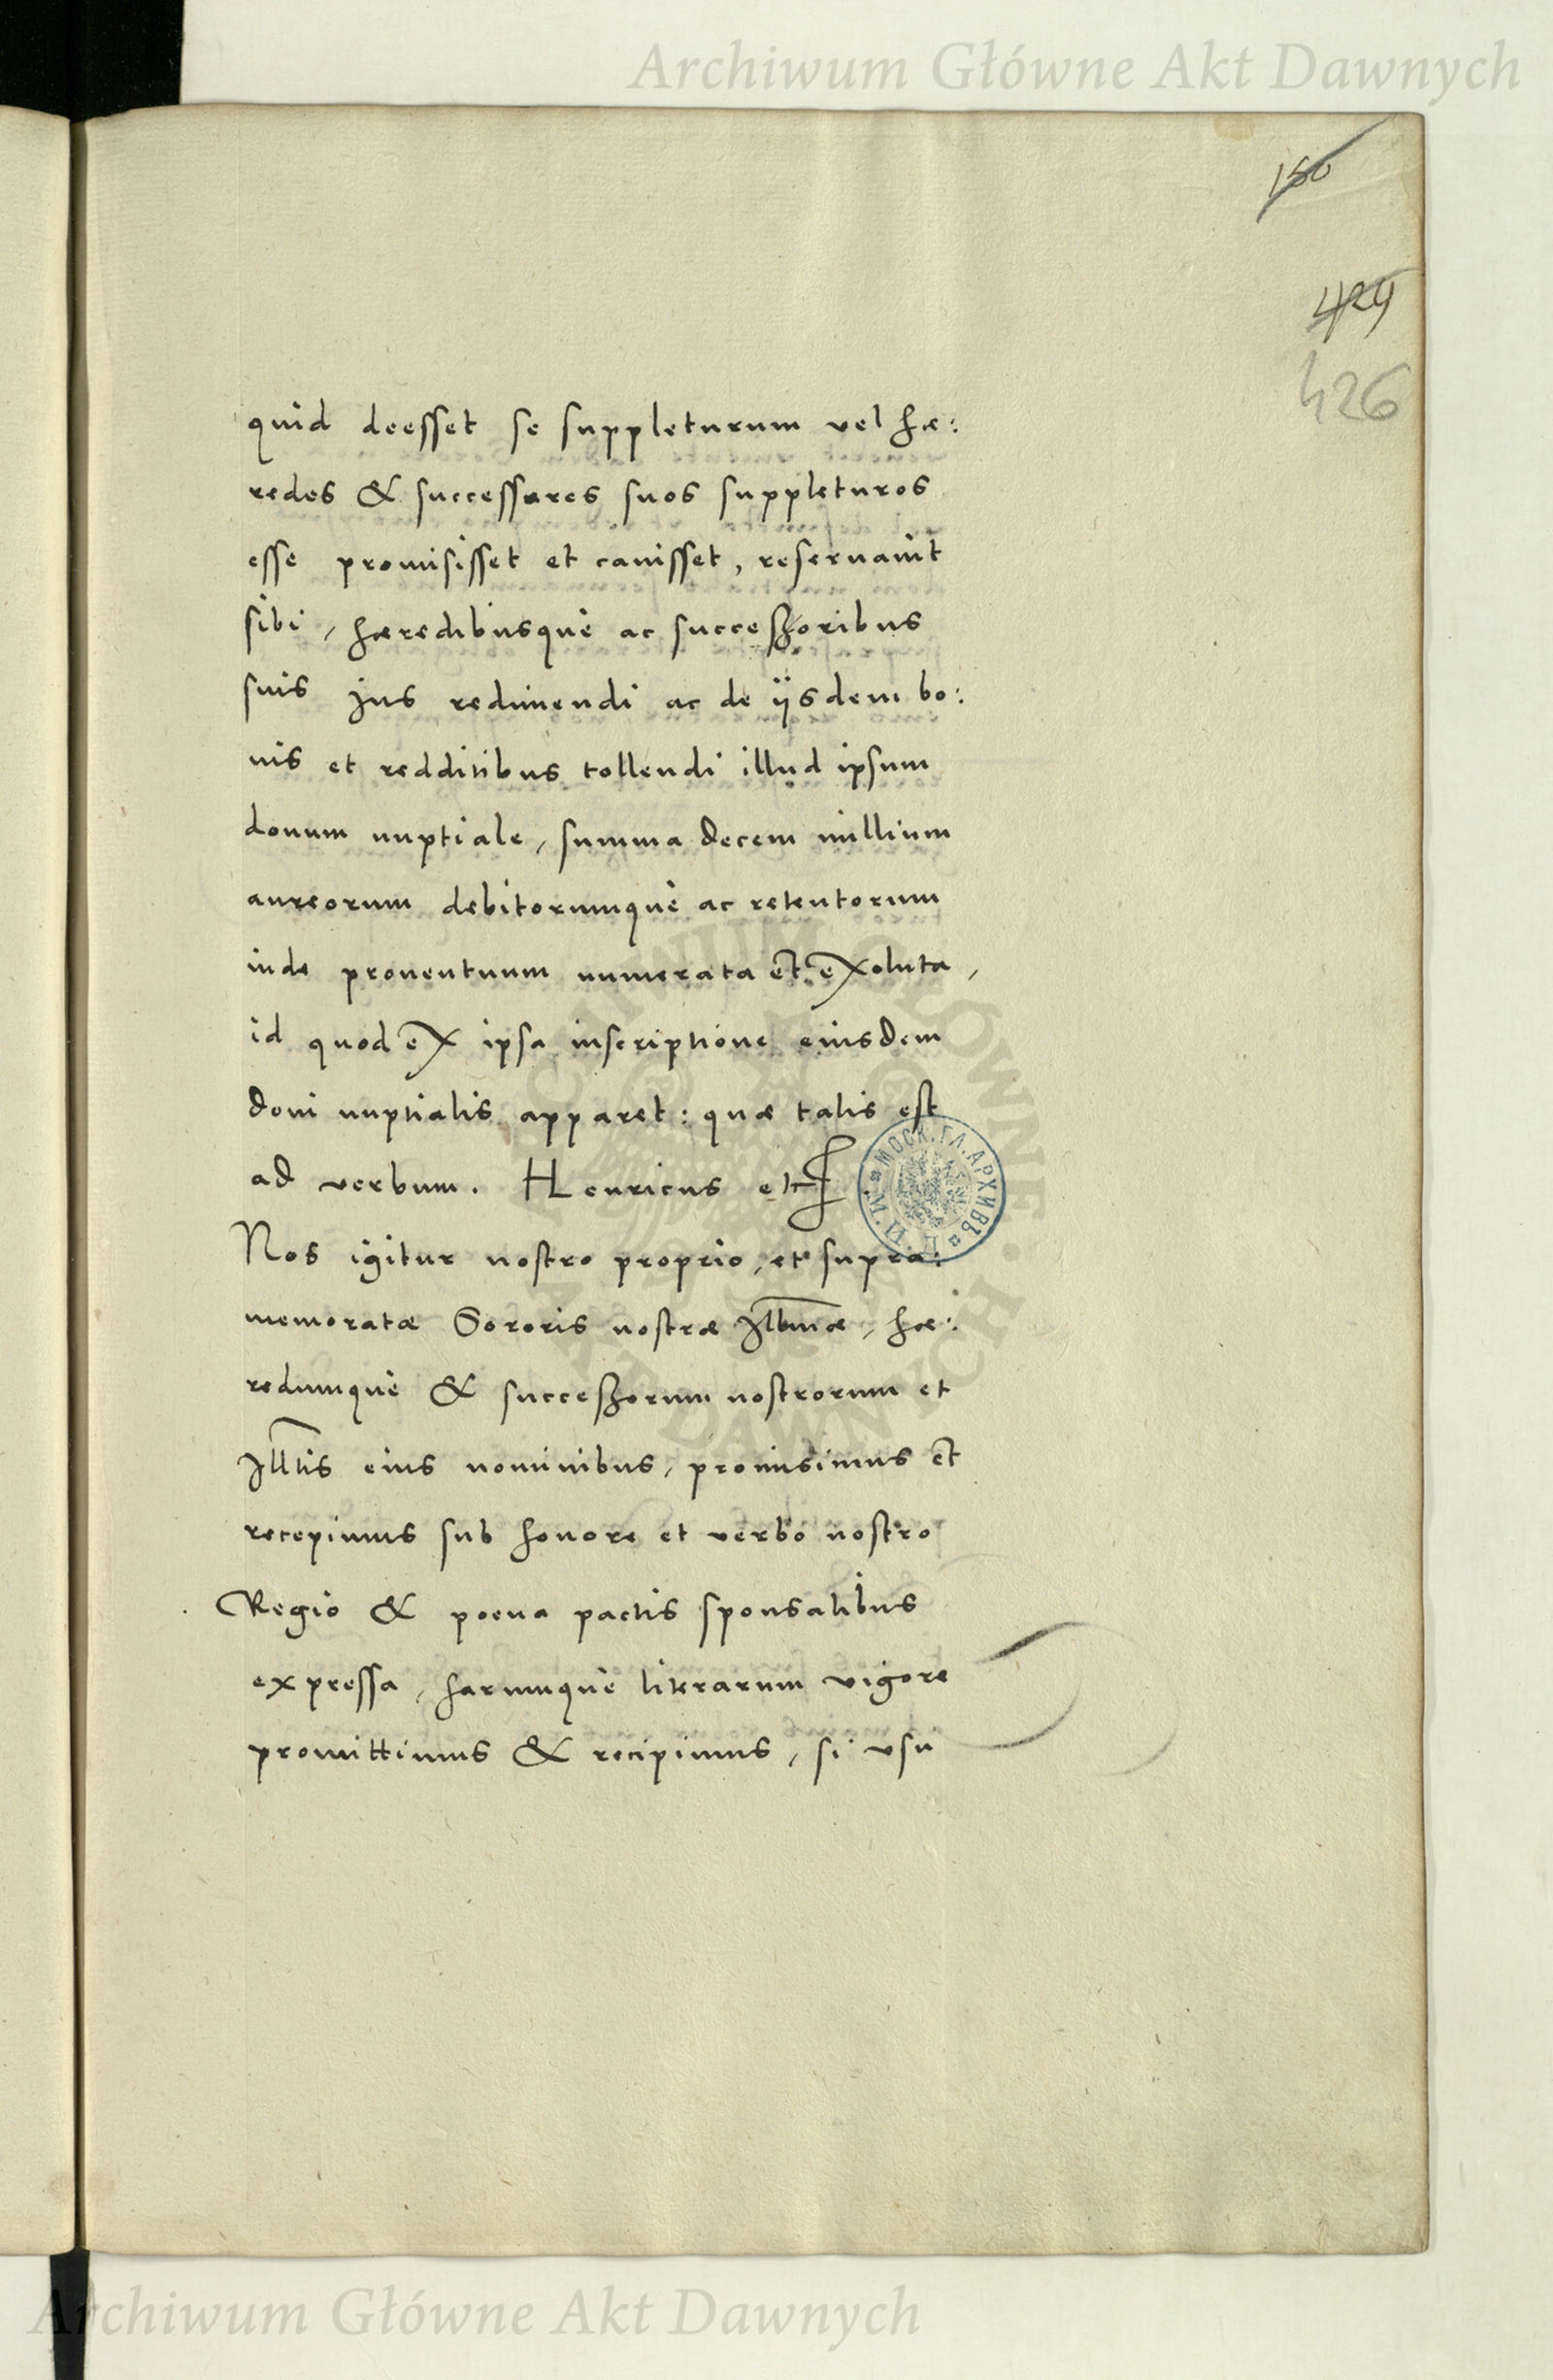 Archiwum Główne Akt Dawnych
150
424
426
quid deesset se suppleturum vel hæ:
redes & successores suos suppleturos
esse promisisset et cauisset, reseruauit
sibi, hæredibusque ac successoribus
suis jus redimendi ac de ijsdem bo:
nis et redditibus tollendi illud ipsum
donum nuptiale, summa decem millium
aureorum debitorumque ac retentorum
inde prouentuum numerata et exoluta,
id quod ex ipsa inscriptione eiusdem
doni nuptialis apparet: quæ talis est
ad verbum. Henricus etc
Nos igitur nostro proprio, et supra:
memoratæ Sororis nostræ Illmæ, hæ:
redumque & successorum nostrorum et
Illtis eius nominibus, promisimus et
recepimus sub honore et verbo nostro
Regio & poena pactis sponsalibus
expressa, harumque literarum vigore
promittimus & recipimus, si vsu
МОСК. ГЛ. АРХИВЪ
М. И. Д.
ARCHIWUM GŁÓWNE
AKT DAWNYCH
Archiwum Główne Akt Dawnych